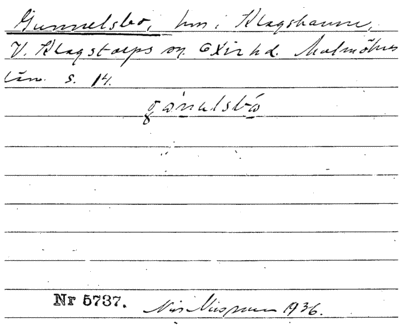 Gunnelsbo, hm i Klagshamn,
V. Klagstorps sn. Oxie hd. Malmöhus
län. S. 14.
gønalsbó
Nr 5737. Nils 1936.